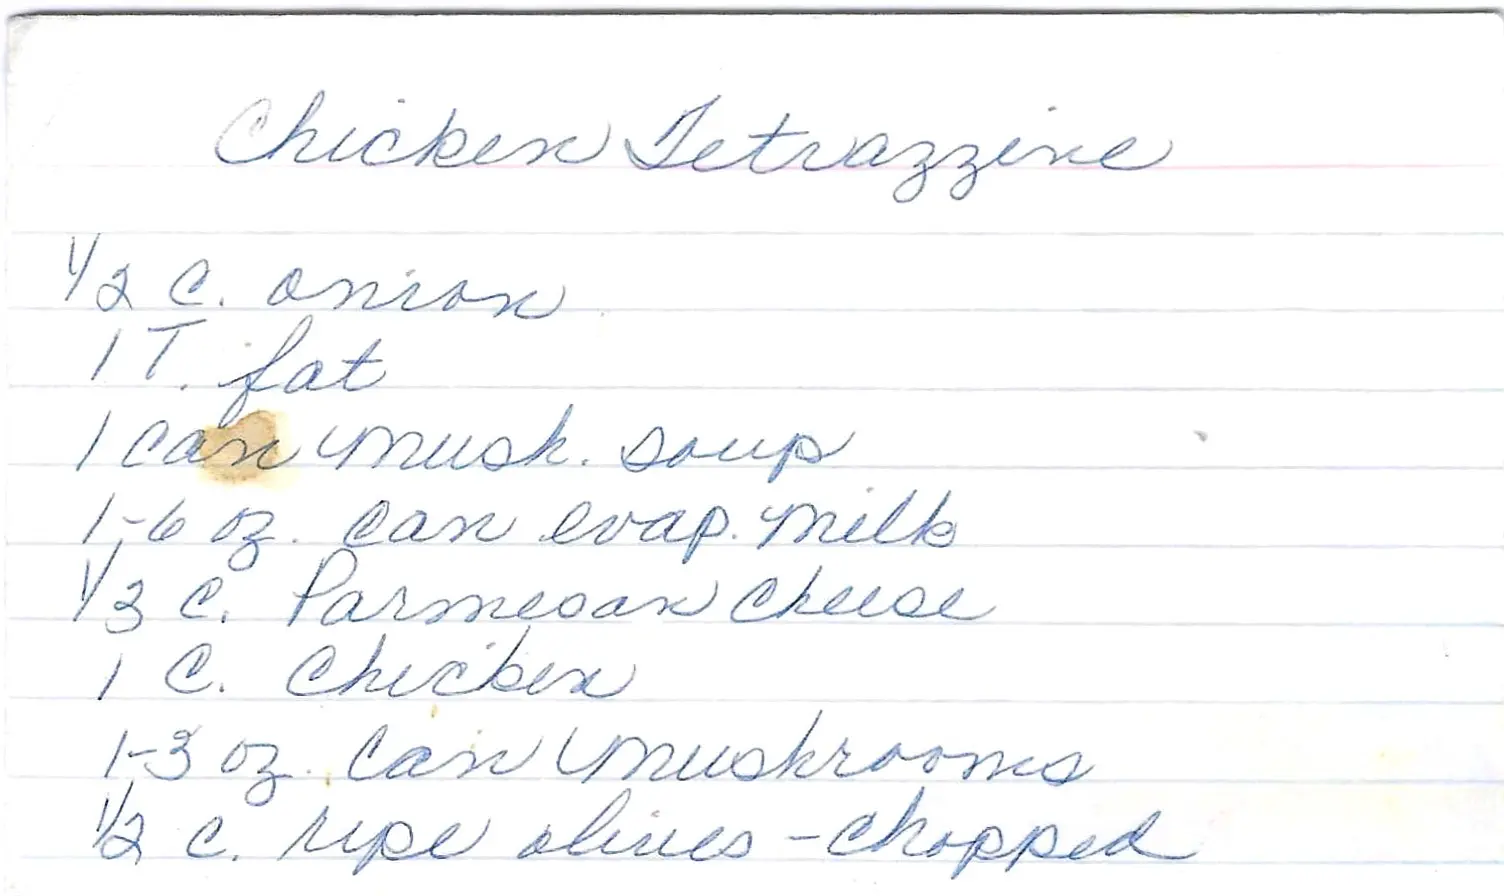 Chicken Tetrazzine
1/2 C. onion
1 T. fat
1 can mush. soup
1-6 oz. can evap. milk
1/3 C. Parmesan cheese
1 C. Chicken
1-3 oz. can mushrooms
1/2 C. ripe olives - chopped